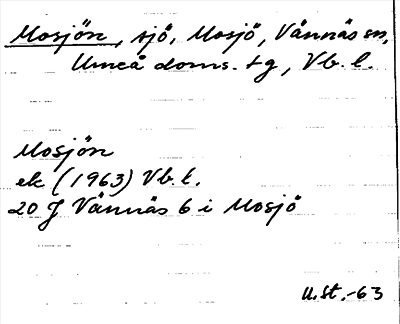 Mosjön, sjö, Mosjö, Vännäs sn,
Umeå doms. tg, Vb. l.
Mosjön
ek (1963) Vb. l.
20 J Vännäs 6 i Mosjö
U.St.-63